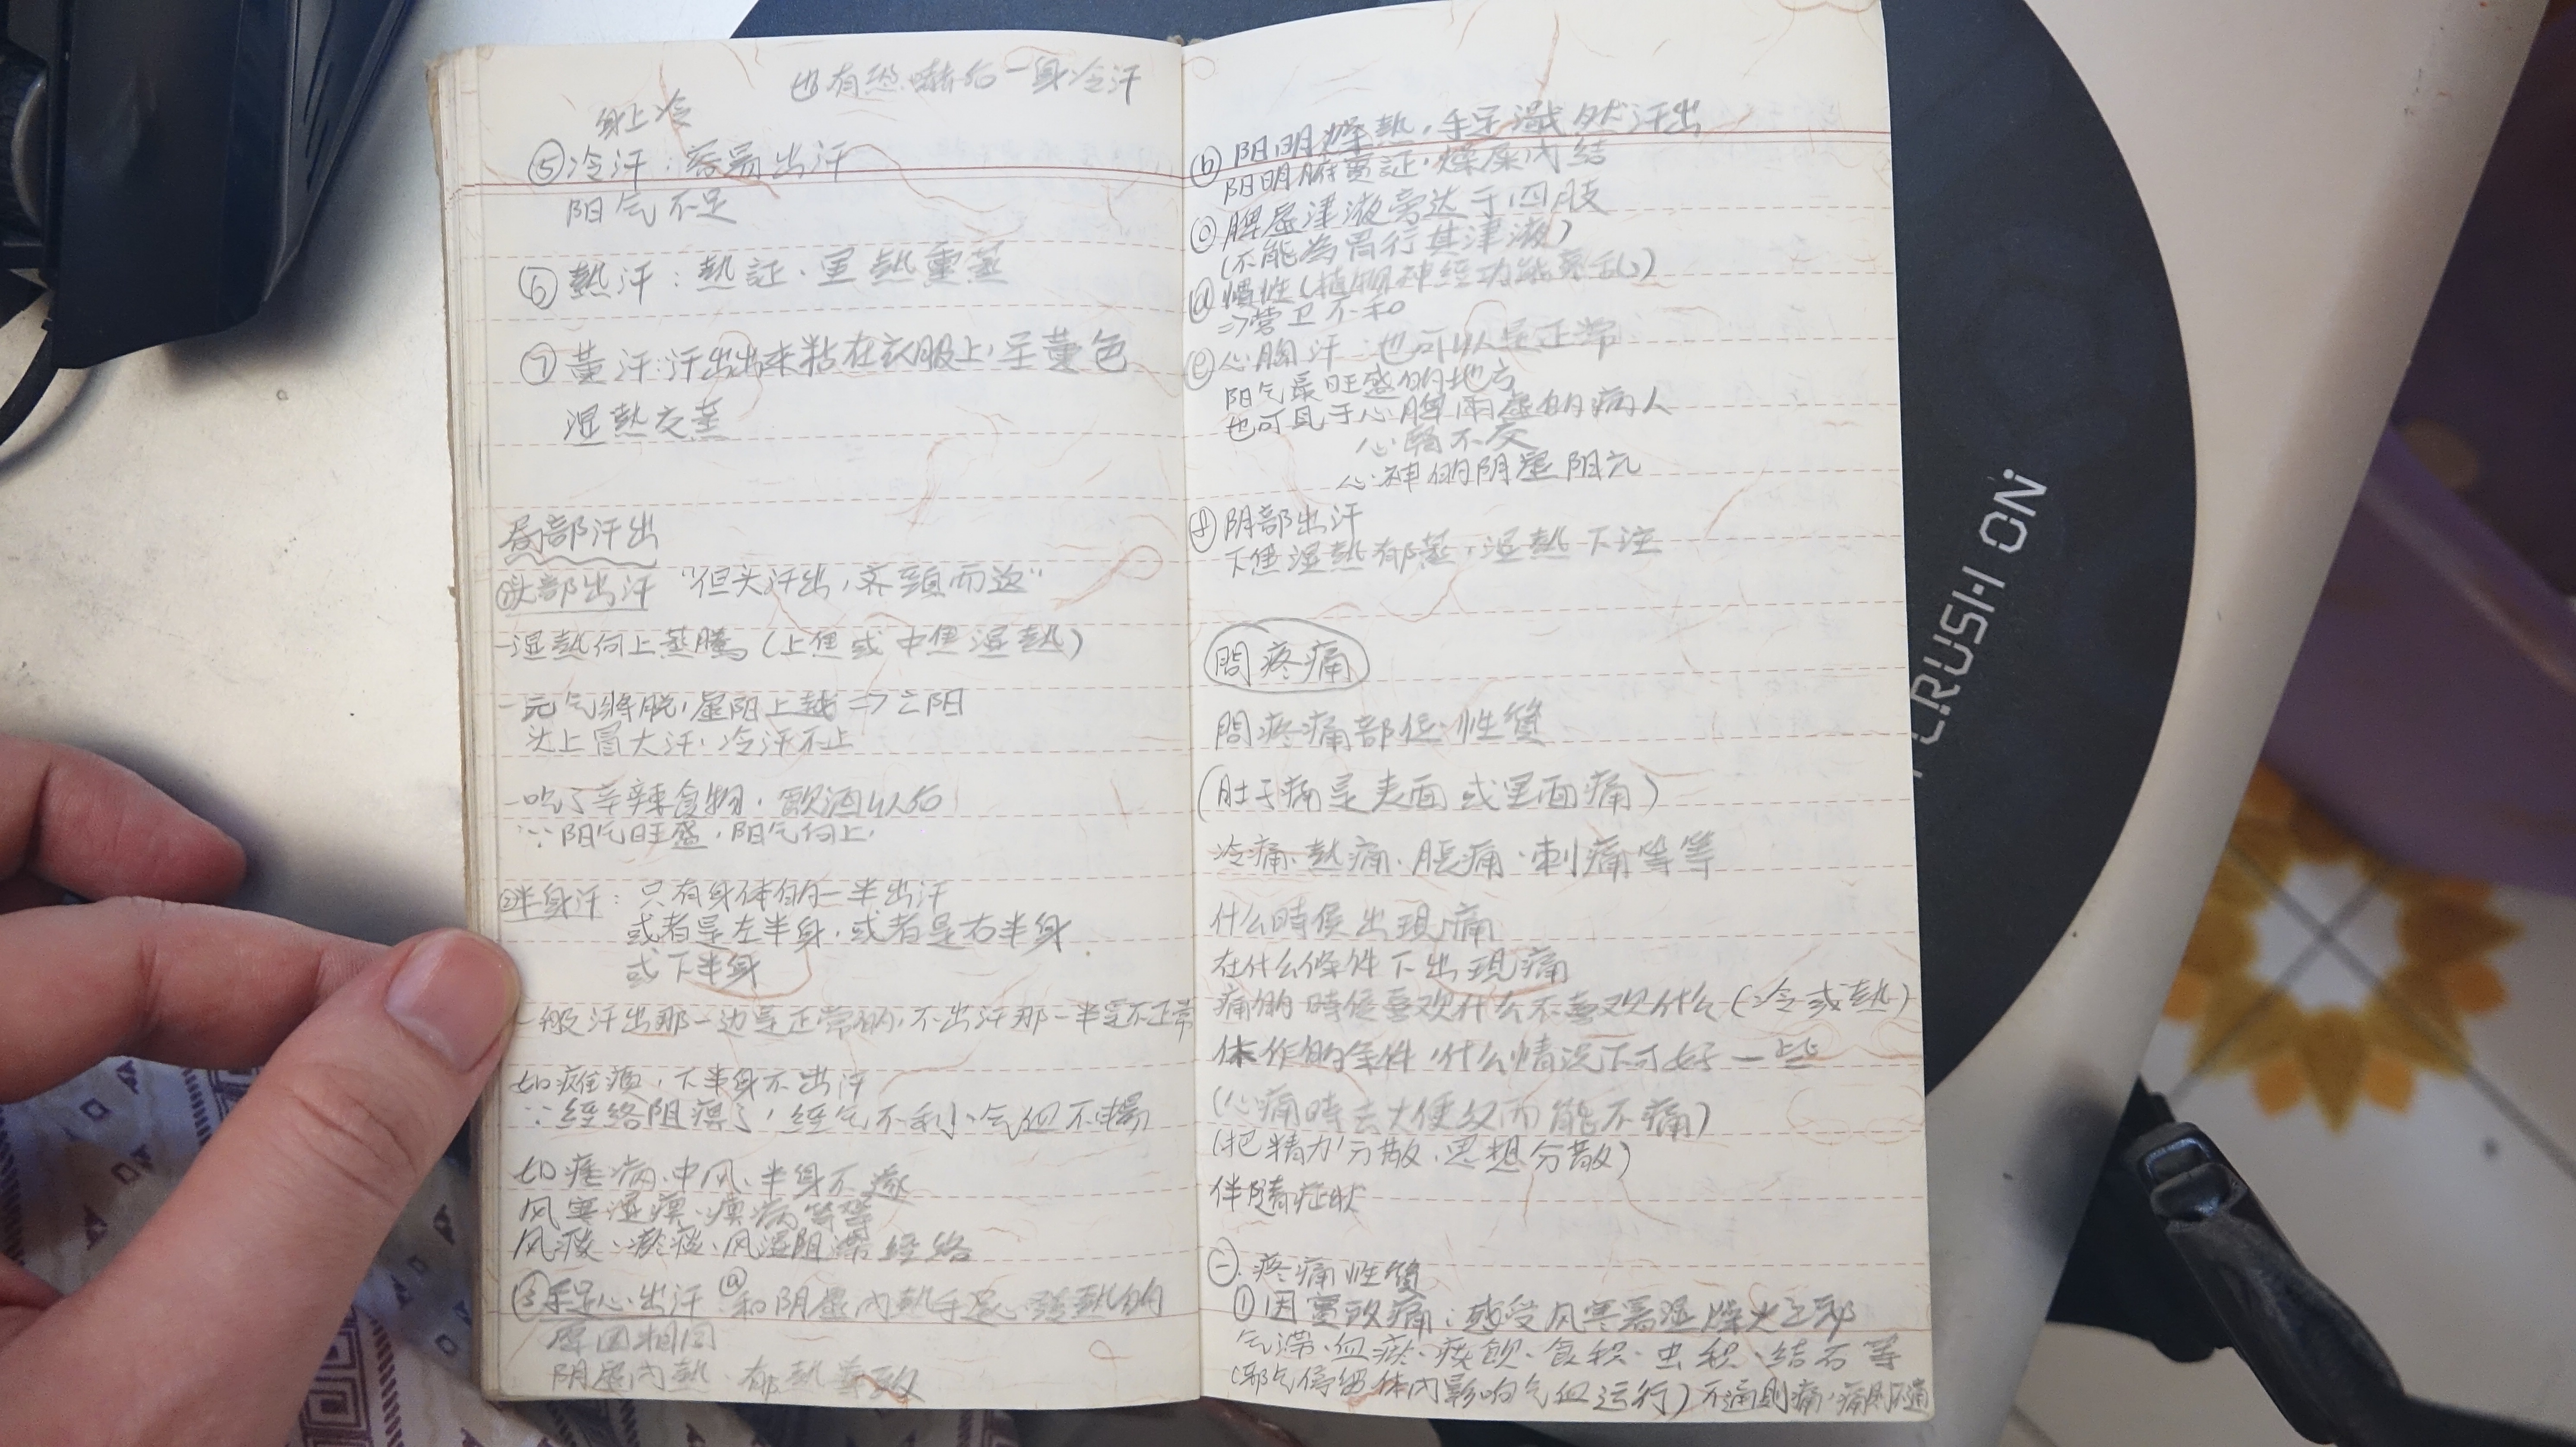 也有恐嚇后一身冷汗
身上冷
⑤冷汗：容易出汗
阳气不足
⑥熱汗：熱証、里熱熏蒸
⑦黃汗：汗出出来粘在衣服上，呈黃色
湿熱交蒸
局部汗出
①头部出汗 "但头汗出，齐頸而还"
－湿熱向上蒸騰（上焦或中焦湿熱）
－元气將脱，虛阳上越⇒亡阳
头上冒大汗，冷汗不止
－吃了辛辣食物，飲酒以后
∵阳气旺盛，阳气向上
②半身汗：只有身体的一半出汗
或者是左半身，或者是右半身
或下半身
一般汗出那一边是正常的，不出汗那一半是不正常
如癱痪，下半身不出汗
∵经络阻痹了，经气不利、气血不暢
如痿病、中风、半身不遂
风寒湿痹、痹病等等
风痰、瘀痰、风湿阻滞经络
③手足心出汗 ⓐ和阴虛內熱手足心發熱的
原因相同
阴虛內熱、郁熱導致
ⓑ 阳明燥熱，手足濈然汗出
阳明腑實証，燥屎內結
ⓒ 脾虛津液旁达于四肢
（不能為胃行其津液）
ⓓ 慣性（植物神经功能紊乱）
⇒营卫不和
ⓔ 心胸汗：也可以是正常
阳气最旺盛的地方
也可見于心脾兩虛的病人
心腎不交
心神的阴虛阳亢
ⓕ 阴部出汗
下焦湿熱郁蒸，湿熱下注
問疼痛
問疼痛部位、性質
（肚子痛是表面或里面痛）
冷痛、熱痛、脹痛、刺痛等等
什么時侯出現痛
在什么條件下出現痛
痛的時侯喜欢什么不喜欢什么（冷或熱）
体作的条件，什么情況下可好一些
（心痛時去大便反而能不痛）
（把精力分散、思想分散）
伴隨症状
㊀ 疼痛性質
① 因實致痛：感受风寒暑湿燥火之邪
气滞、血瘀、痰飲、食积、虫积、结石等
（邪气停留体內影响气血运行）不通則痛，痛則不通
CRUSH ON